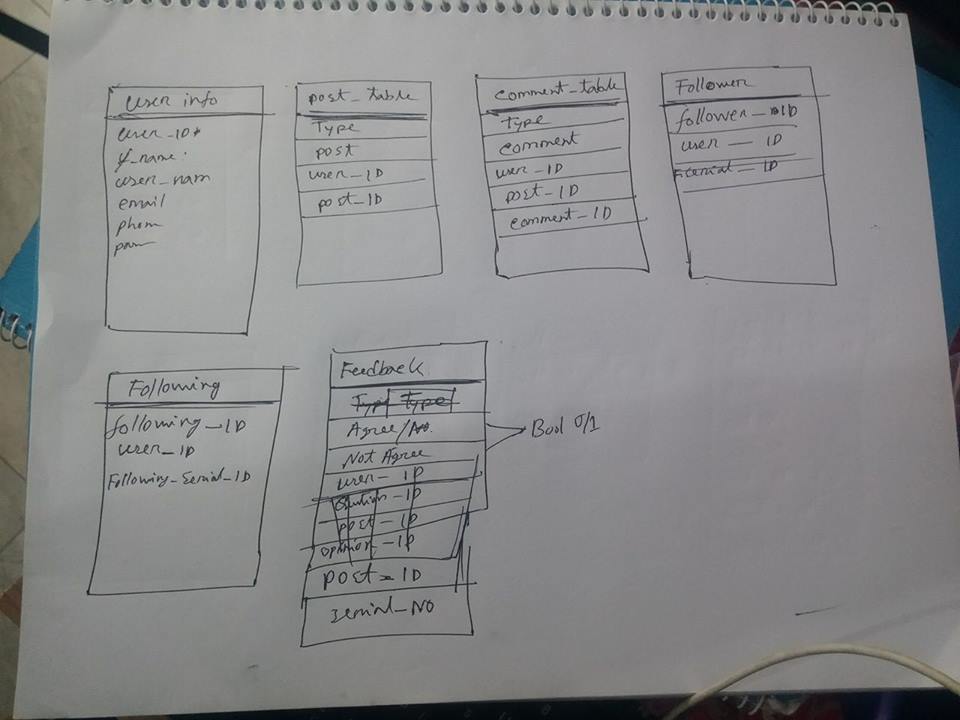 User info
user_ID*
f_name.
user_nam
email
phone
post_table
Type
post
user_ID
post_ID
comment_table
Type
comment
user_ID
post_ID
comment_ID
Follower
follower_ID
user — ID
serial_ID
Following
following_ID
user_ID
Following_Serial_ID
Feedback
Type Type
Agree/No.
Not Agree
Bool 0/1
user_ID
post_ID
opinion_ID
post_ID
serial_NO